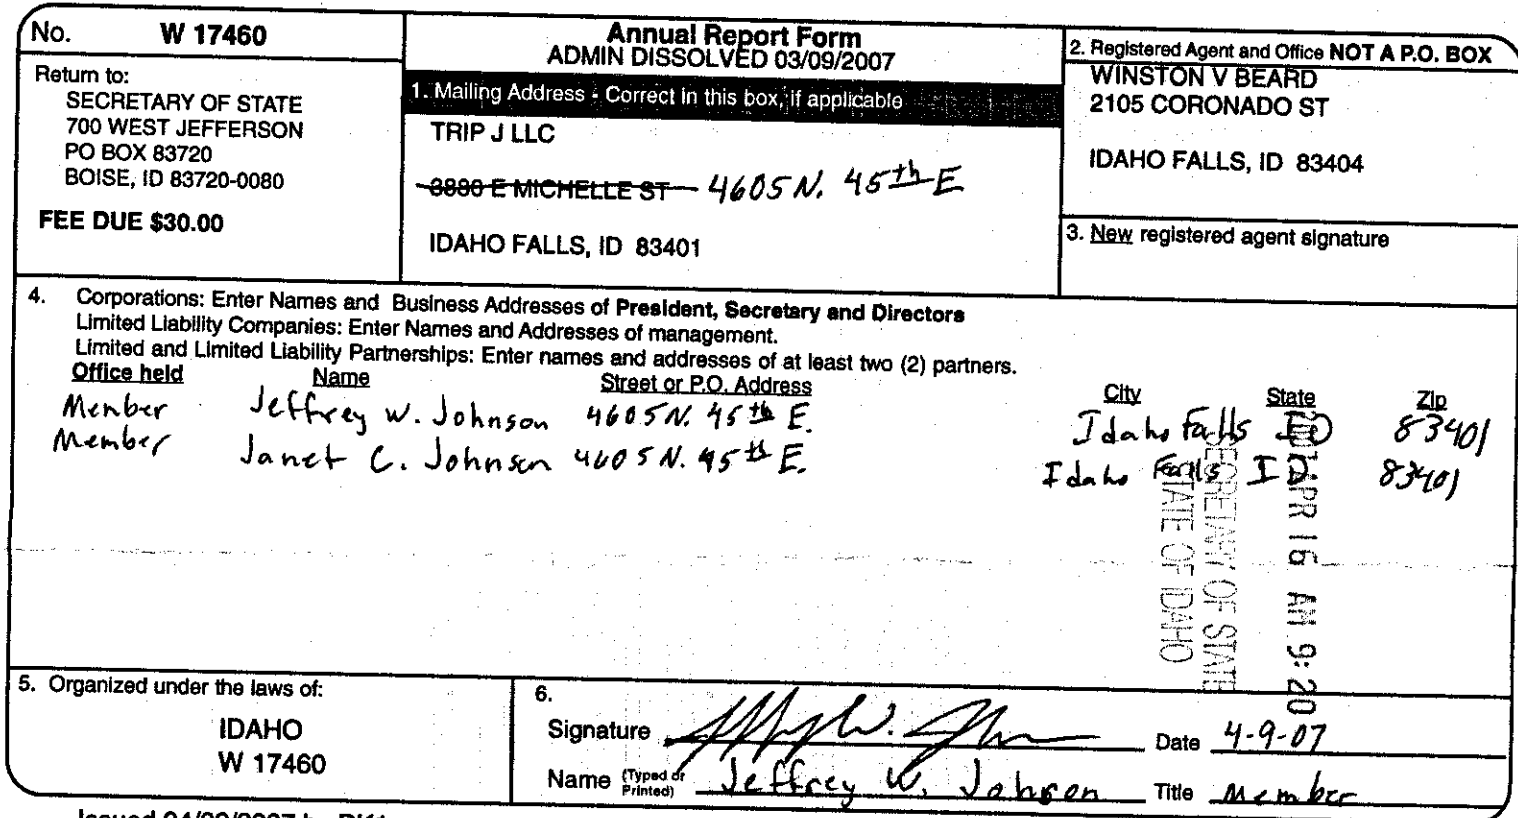 No. W 17460
Return to:
SECRETARY OF STATE
700 WEST JEFFERSON
PO BOX 83720
BOISE, ID 83720-0080
FEE DUE $30.00
Annual Report Form
ADMIN DISSOLVED 03/09/2007
1. Mailing Address - Correct in this box, if applicable
TRIP J LLC
3880 E MICHELLE ST 4605 N. 45th E
IDAHO FALLS, ID 83401
2. Registered Agent and Office NOT A P.O. BOX
WINSTON V BEARD
2105 CORONADO ST
IDAHO FALLS, ID 83404
3. New registered agent signature
4. Corporations: Enter Names and Business Addresses of President, Secretary and Directors
Limited Liability Companies: Enter Names and Addresses of management.
Limited and Limited Liability Partnerships: Enter names and addresses of at least two (2) partners.
Office held Name Street or P.O. Address City State Zip
Member Jeffrey W. Johnson 4605 N. 45th E. Idaho Falls ID 83401
Member Janet C. Johnson 4605 N. 45th E. Idaho Falls ID 83401
APR 16 AM 9:20
SECRETARY OF STATE
STATE OF IDAHO
5. Organized under the laws of:
IDAHO
W 17460
6.
Signature Date 4-9-07
Name (Typed or Printed) Jeffrey W. Johnson Title Member